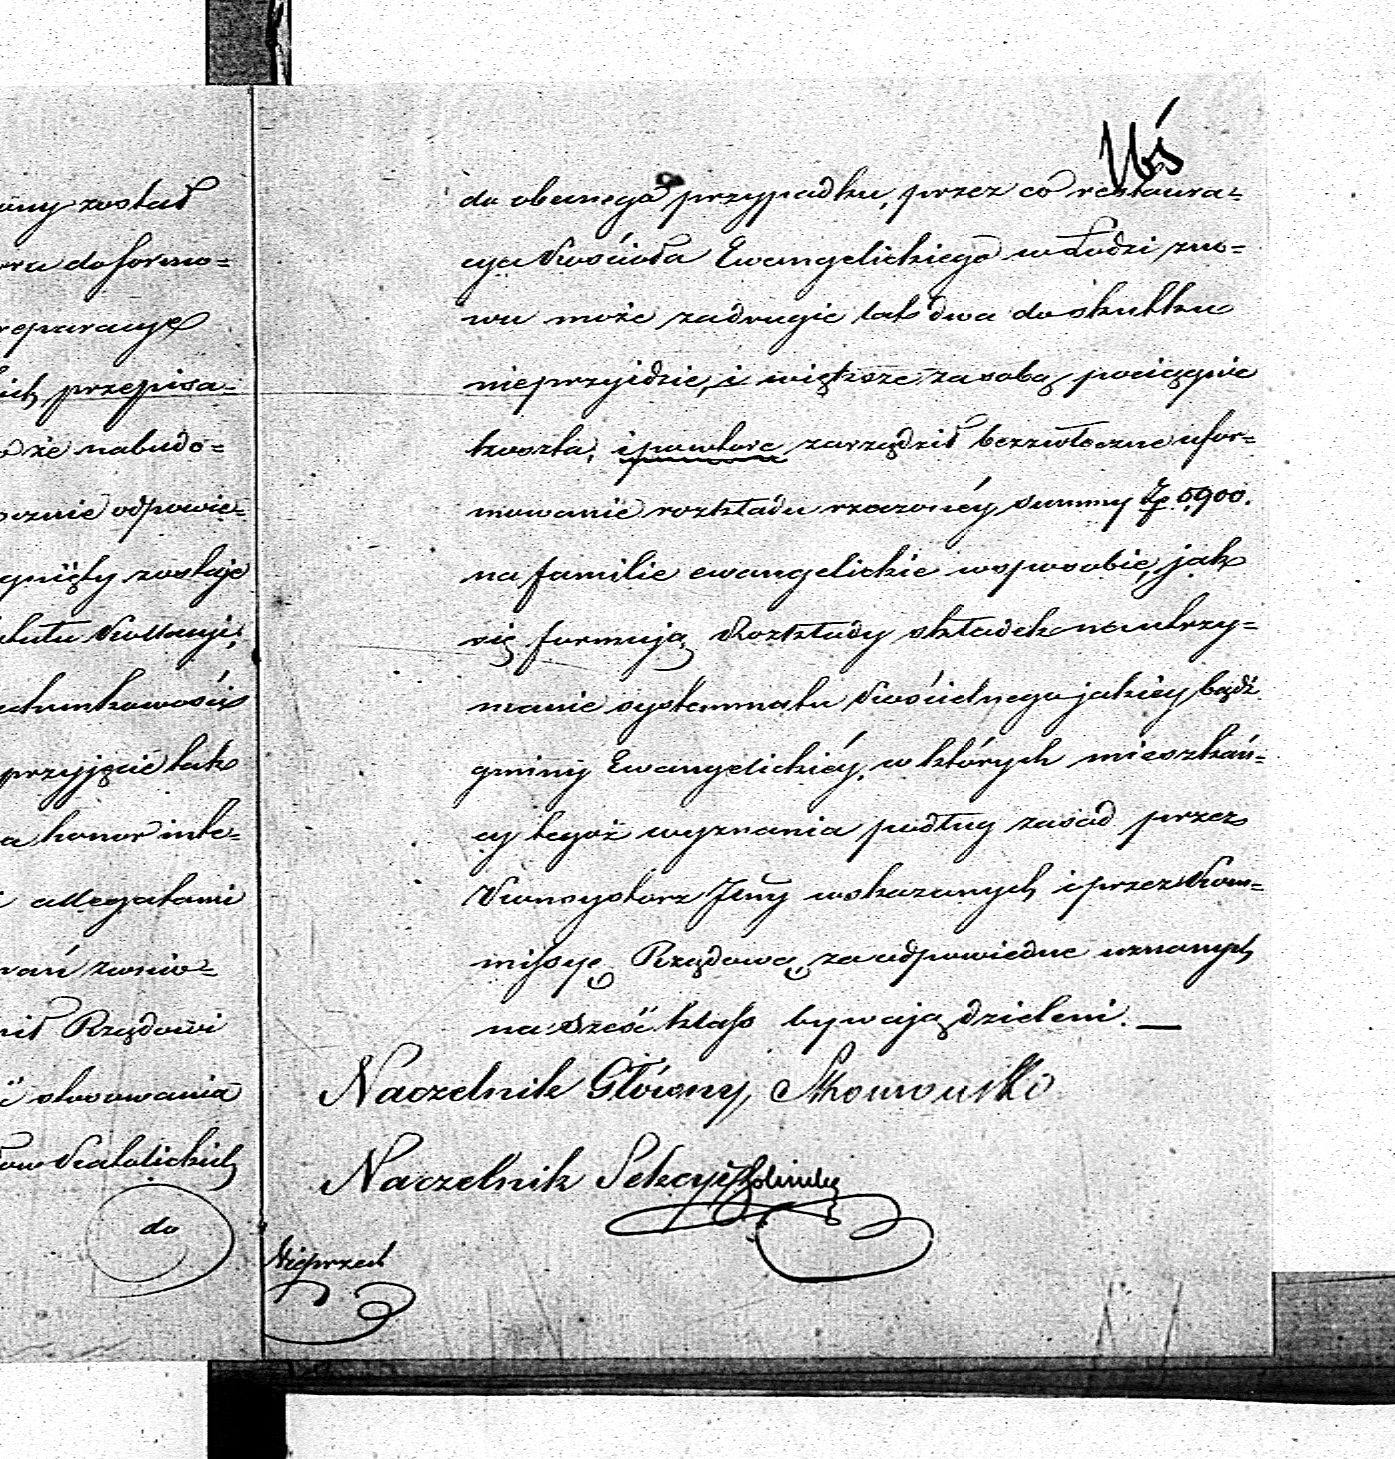 ony został
do formo=
reparacyę
ich przepisa=
że nabudo=
cznie odpowie=
gnięty zostaje
przyjęcie tak
a honor inte=
allegatami
nił Rządowi
stosowania
Katolickich
do
do obecnego przypadku, przez co restaura=
cya Kościoła Ewangelickiego w Łodzi zno=
wu może za drugie lat dwa do skutku
nieprzyidzie, i większe za sobą pociągnie
koszta, i powtore zarządził bezzwłoczne ufor=
mowanie rozkładu rzeczonéy summy Zł 5900.
na familie ewangelickie w sposobie, jak
się formują Rozkłady składek na utrzy=
manie systemmatu Kościelnego jakiey bądź
gminy Ewangelickiéy, w których mieszkań=
cy tegoż wyznania podług zasad przez
Konsystorz Jlny wskazanych i przez Kom=
missyę Rządową za odpowiedne uznanych
na sześć klass bywają dzieleni. —
Naczelnik Główny,
Naczelnik Sekcyi